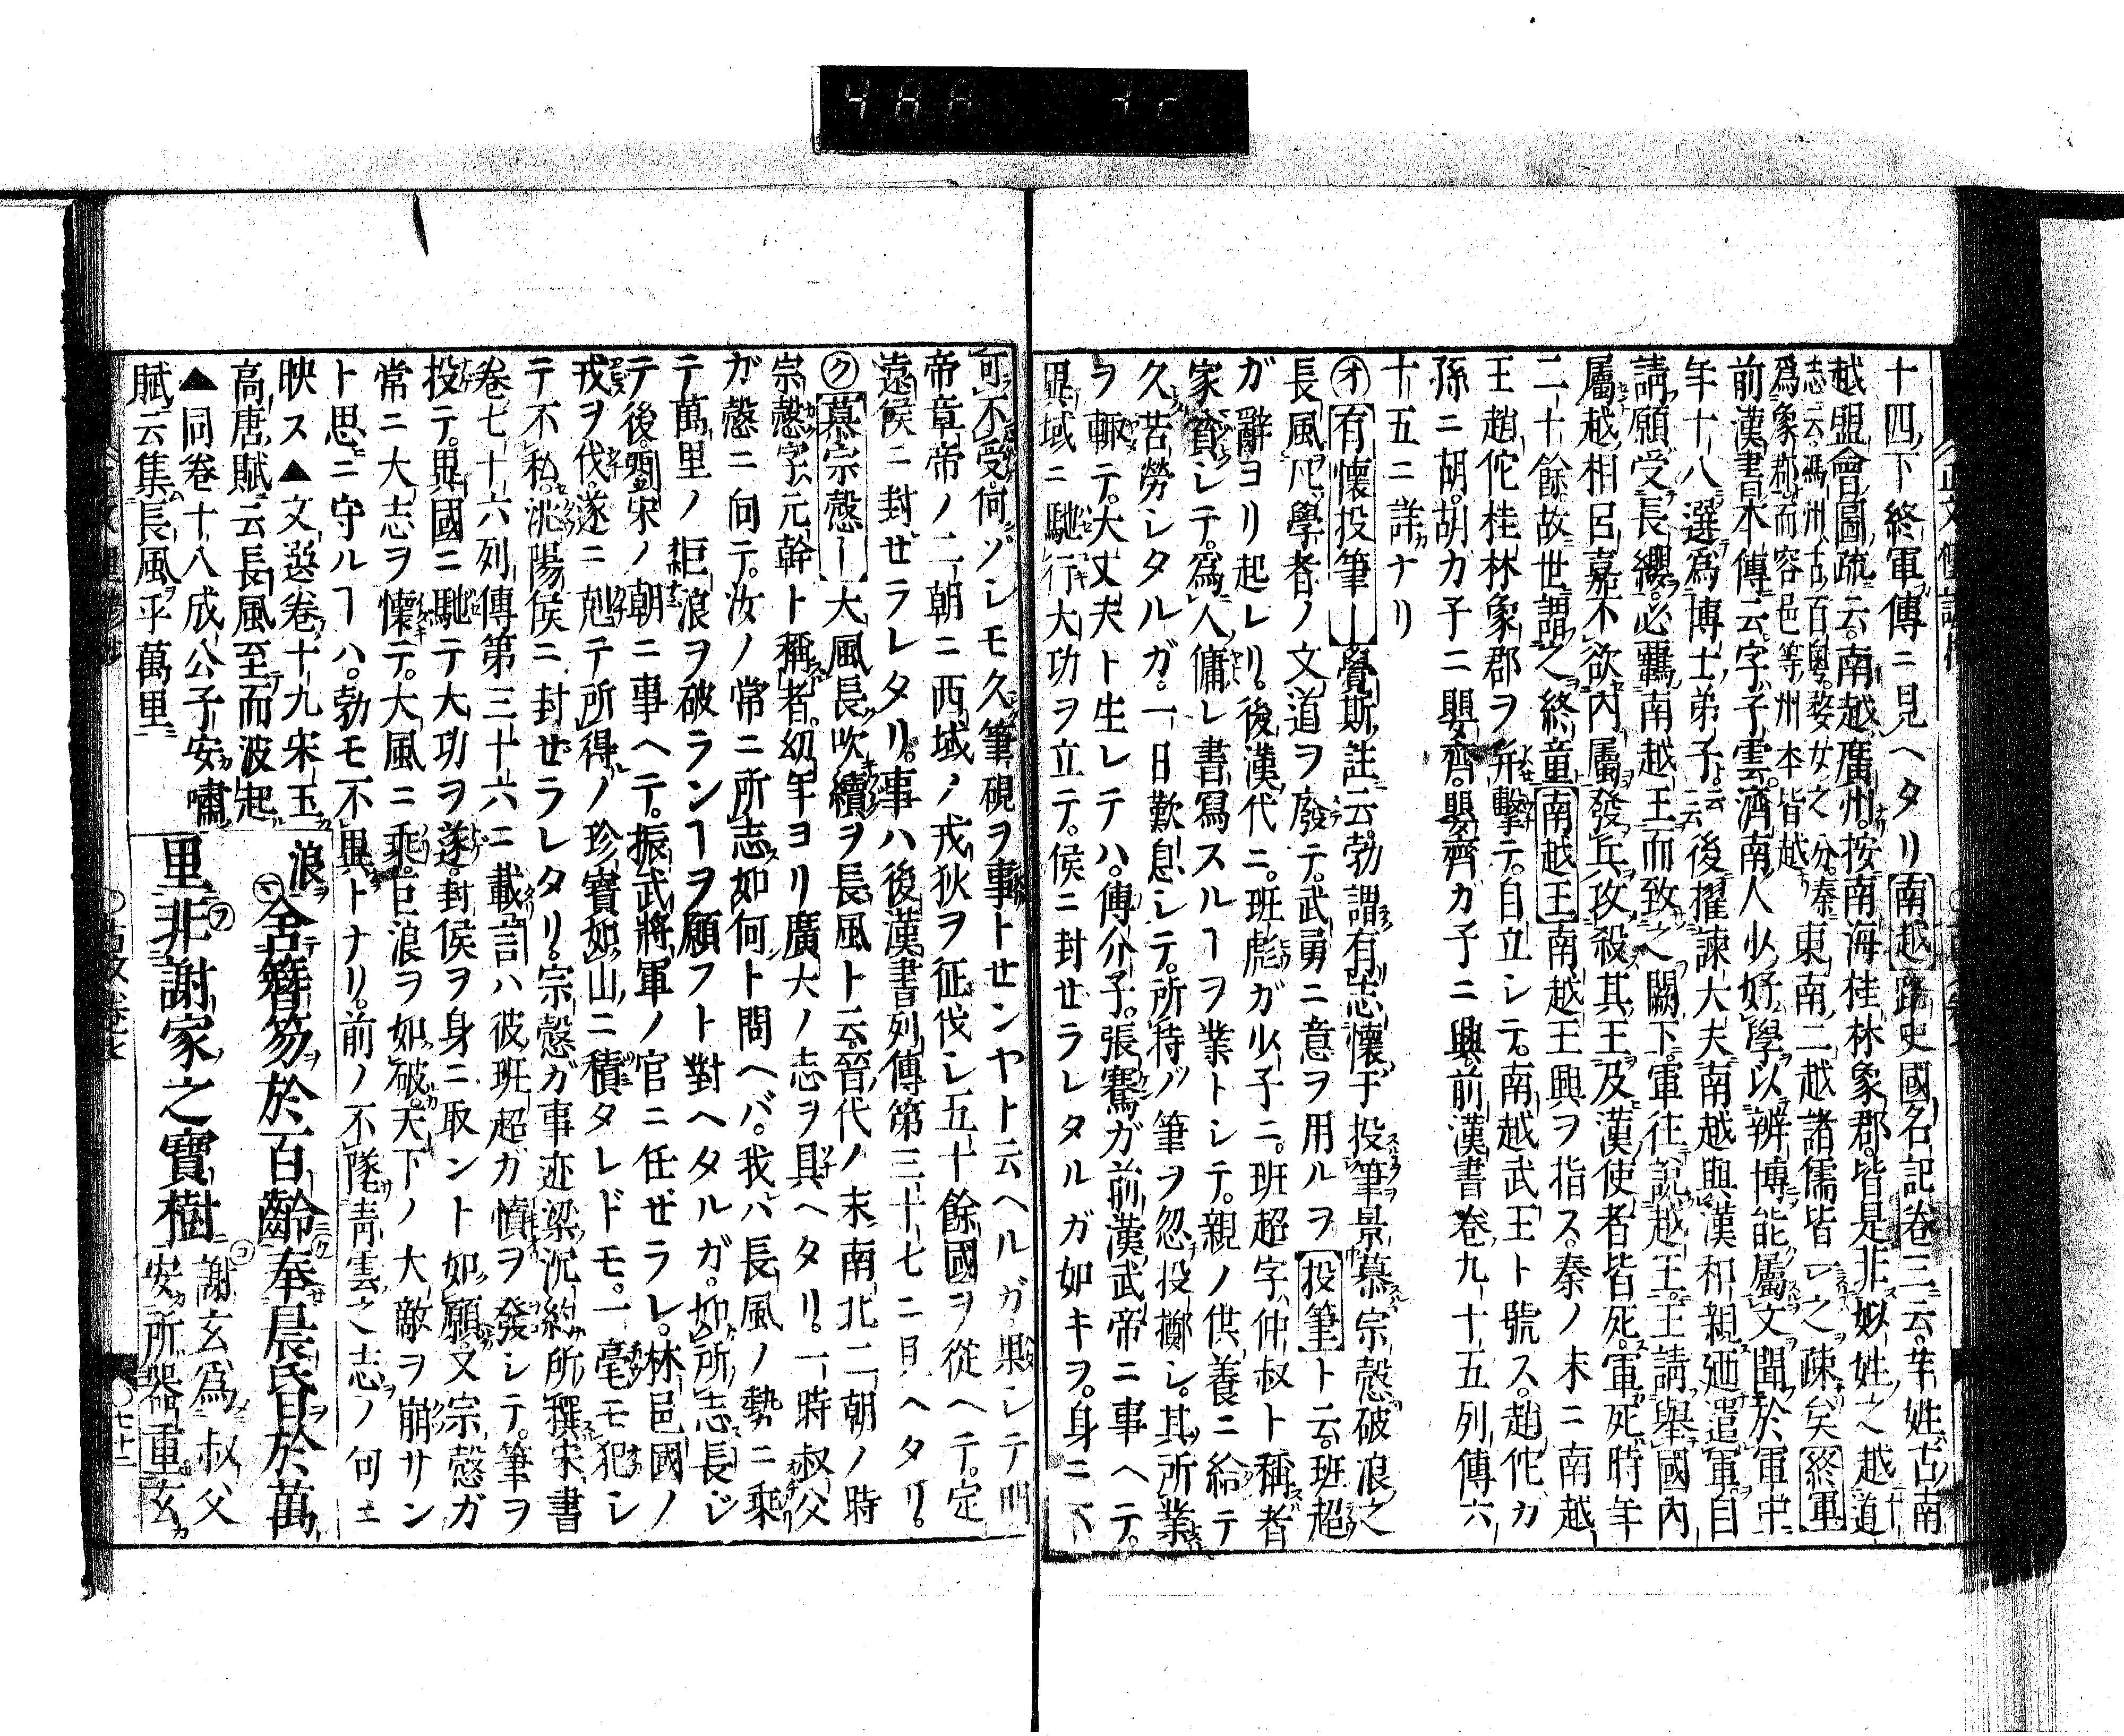 十四下終軍傳ニ見ヘタリ南越路史國名記卷三云芈姓古南
越盟會圖疏云南越廣州按南海桂林象郡皆是非姒姓之越道
志云馮州古百奧婺女之分秦
爲象郡而容邑等州本皆越
東南二越諸儒皆一之疎矣終軍
前漢書本傳云字子雲濟南人少好學以辨博能屬文聞於軍中
年十八選爲博士弟子云云後擢諫大夫南越與漢和親廼遣軍自
請願受長纓必羈南越王而致之闕下軍往說越王王請舉國內
屬越相呂嘉不欲內屬發兵攻殺其王及漢使者皆死軍死時年
二十餘故世謂之終童南越王南越王興ヲ指ス秦ノ末ニ南越
王趙佗桂林象郡ヲ幷擊テ自立シテ南越武王ト號ス趙佗カ
孫ニ胡胡ガ子ニ嬰齊嬰齊ガ子ニ興前漢書卷九十五列傳六
十五ニ詳ナリ
オ有懷投筆ー覺斯註云勃謂有志懷于投筆景慕宗慤破浪之
長風凡學者ノ文道ヲ廢テ武勇ニ意ヲ用ルヲ投筆ト云班超
ガ辭ヨリ起レリ後漢代ニ班彪ガ少子ニ班超字仲叔ト稱者
家貧シテ爲人傭レ書寫スルヿヲ業トシテ親ノ供養ニ給テ
久苦勞シタルガ一日歎息シテ所持ノ筆ヲ忽投擲シ其所業
ヲ輙テ大丈夫ト生レテハ傳介子張騫ガ前漢武帝ニ事ヘテ
異域ニ馳行大功ヲ立テ侯ニ封ゼラレタルガ如キヲ身ニ下
可不受何ゾシモ久筆硯ヲ事トセンヤト云ヘルガ果シテ明
帝章帝ノ二朝ニ西域ノ戎狄ヲ征伐シ五十餘國ヲ從ヘテ定
遠侯ニ封ゼラレタリ事ハ後漢書列傳第三十七ニ見ヘタリ
ク慕宗慤ー大風長吹續ヲ長風ト云晉代ノ末南北二朝ノ時
崇慤字元幹ト稱者幼年ヨリ廣大ノ志ヲ具ヘタリ一時叔父
ガ慤ニ向テ汝ノ常ニ所志如何ト問ヘバ我ハ長風ノ勢ニ乘
テ萬里ノ巨浪ヲ破ランヿヲ願フト對ヘタルガ如所志長ジ
テ後劉宋ノ朝ニ事ヘテ振武將軍ノ官ニ任ゼラレ林邑國ノ
戎ヲ伐遂ニ剋テ所得ノ珍寶如山ニ積タレドモ一毫モ犯シ
テ不私洮陽侯ニ封ゼラレタリ宗慤ガ事迹梁沉約所撰宋書
卷七十六列傳第三十六ニ載言ハ彼班超ガ憤ヲ發シテ筆ヲ
投テ異國ニ馳テ大功ヲ遂封侯ヲ身ニ取ント如願又宗慤ガ
常ニ大志ヲ懷テ大風ニ乘巨浪ヲ如破天下ノ大敵ヲ崩サン
ト思ニ守ルヿハ勃モ不異トナリ前ノ不墜靑雲之志ノ句ニ
映ス▲文選卷十九宋玉
高唐賦云長風至而波起
▲同卷十八成公子安嘯
賦云集長風乎萬里
浪
マ舍簪笏於百齡ク奉晨昏於萬
里フ非謝家之寶樹コ謝玄爲叔父
安所器重玄